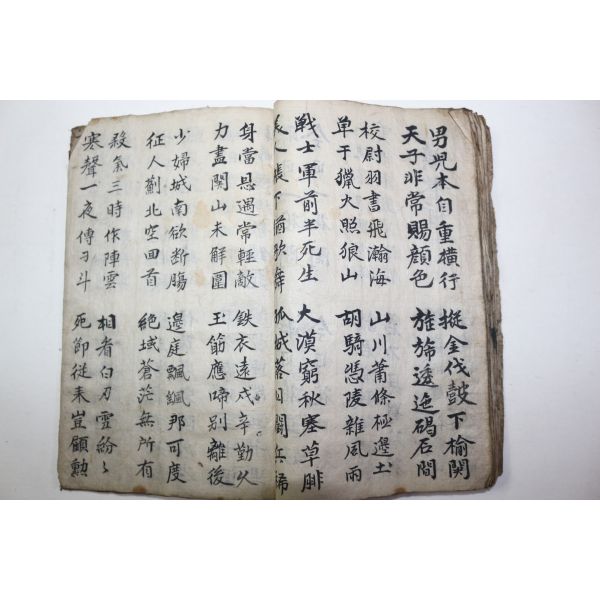 男兒本自重橫行
天子非常賜顔色
摐金伐鼓下榆関
旌旆逶迤碣石間
校尉羽書飛瀚海
单于獵火照狼山
山川蕭條極邊土
胡騎憑陵雜風雨
戦士軍前半死生
美人帳下猶歌舞
大漠窮秋塞草腓
孤城落日闘兵稀
身當恩過常輕敵
力盡関山未解圍
鉄衣遠戍辛勤久
玉筋應啼別離後
少婦城南欲断膓
征人薊北空回首
邊庭飄颻那可度
絶域蒼茫無所有
殺氣三時作陣雲
寒聲一夜傳刁斗
相看白刃雪紛〻
死節従来豈顧勲